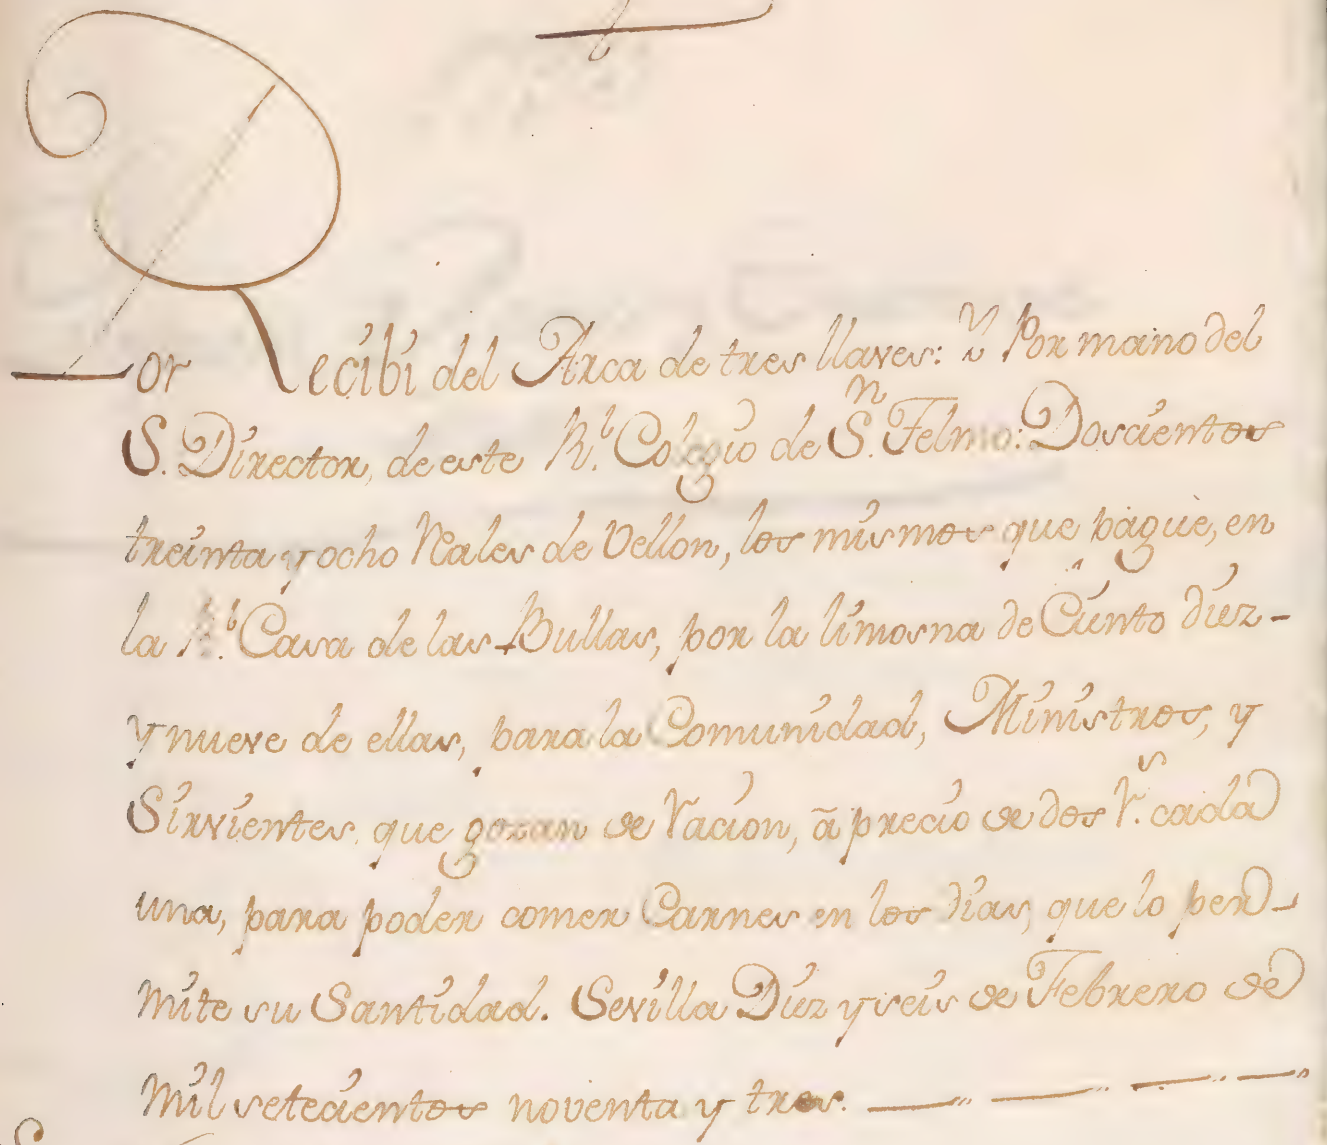 or Recibi del Arca de tres llaves: y Por mano del
S. Director, de este R.l Colegio de S.n Telmo: Doscientos
treinta y ocho Reales de Vellon, los mismos que paguè, en
la R.l Casa de las Bullas, por la limosna de Ciento diez-
y nueve de ellas, para la Comunidad, Ministros, y
Sirvientes, que gozan de racion, ã precio de dos r.s cada
una, para poder comer Carnes en los dias, que lo per-
mite su Santidad. Sevilla Diez y seis de Febrero de
mil setecientos noventa y tres.